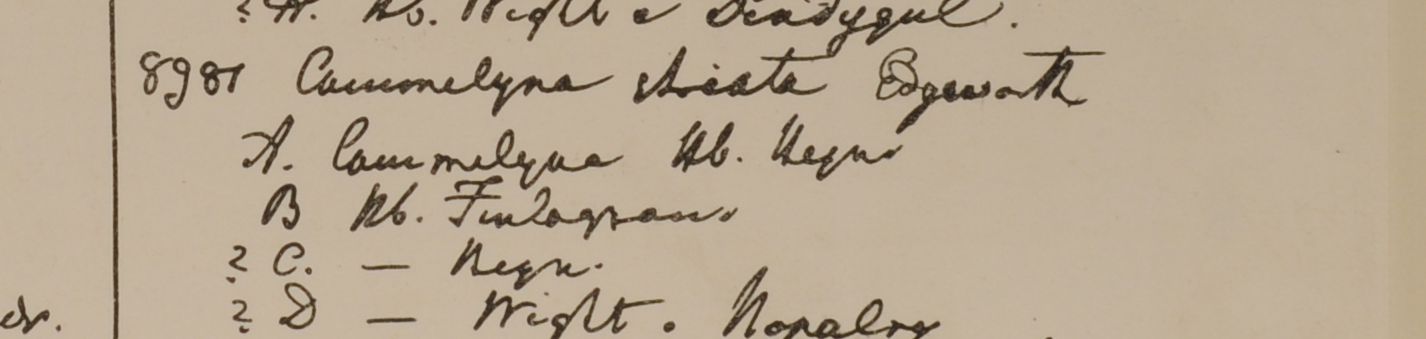 ? A. Hb. Wight e Dindygul.
8981 Commelyna striata Edgeworth
A. Commelyna Hb. Heyn.
B Hb. Finlayson.
? C. — Heyn.
? D — Wight.